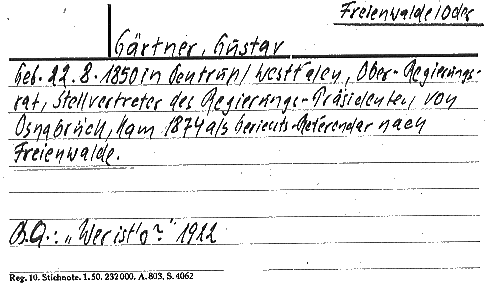 Freienwalde/Oder
Gärtner, Gustav
Geb. 22.8.1850 in Gentrup/Westfalen, Ober-Regierungs-
rat, Stellvertreter des Regierungs-Präsidenten von
Osnabrück, kam 1874 als Gerichts-Referendar nach
Freienwalde.
B.Q.: „Wer ist's?" 1922
Reg. 10. Stichnote. 1. 50. 232000. A. 803, S. 4062